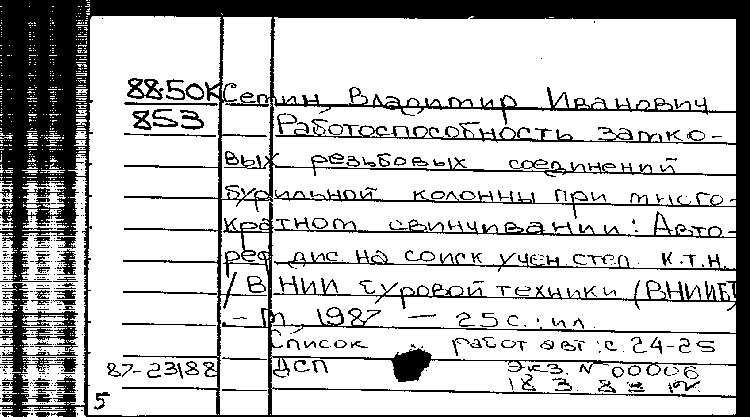 88.50К Сетин, Владимир Иванович
853 Работоспособность замко-
вых резьбовых соединений
бурильной колонны при много-
кратном свинчивании: Авто-
реф дис на соиск учен степ. к.т.н.
/ ВНИИ буровой техники (ВНИИБТ)
.- М, 1987 — 25 с.: ил.
Список работ авт.: с. 24-25
87-23188 ДСП Экз. N 00006
18 3 88
5